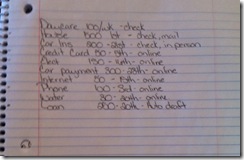 Daycare 100/wk - check
House 1500 1st - check, mail
Car Ins 200 - 21st - check, in person
Credit Card 50 - 5th - online
Elect 150 - 16th - online
Car payment 300 - 28th - online
Internet 50 - 15th - online
Phone 60 - 3rd - online
Water 30 - 30th - online
Loan 200 - 20th - Auto draft